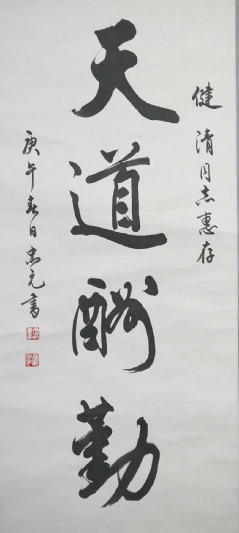 健清同志惠存
天道酬勤
庚午春日忠元書